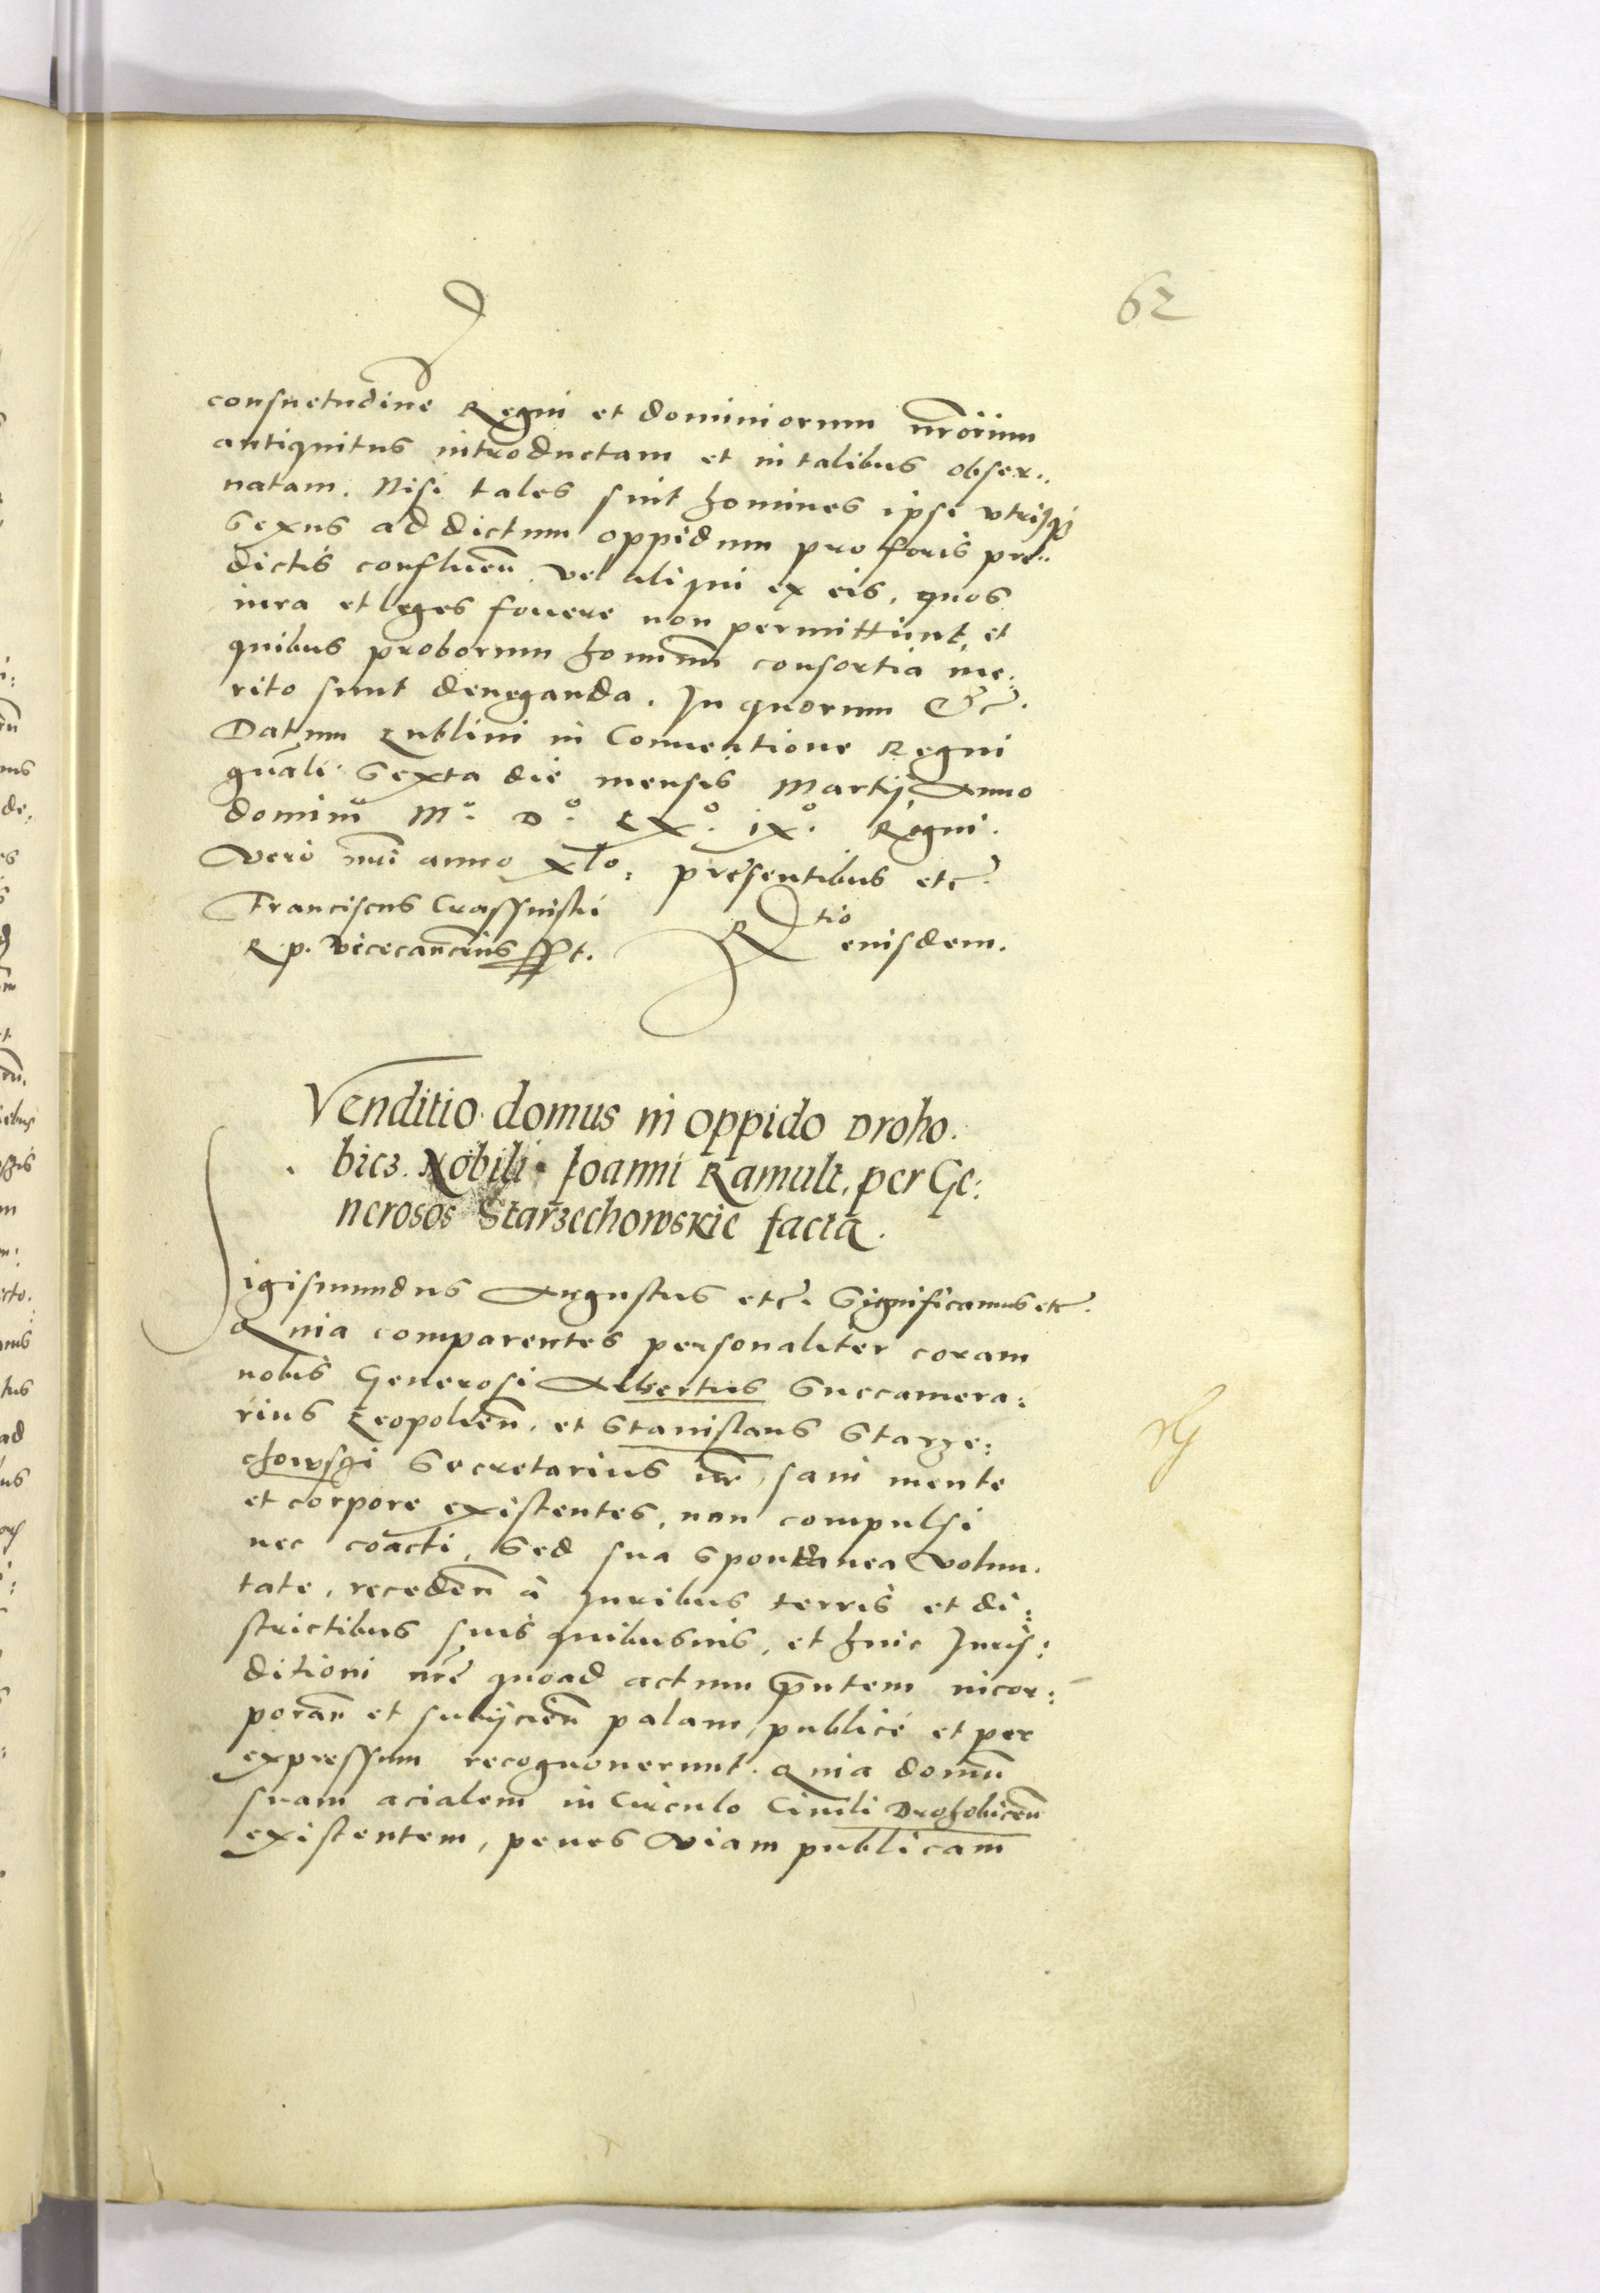 62
consuetudine Regni et dominiorum nr̃orum
antiquitus introductam et in talibus obser..
uatam. Nisi tales sint homines ipsi vtriusq̃
sexus ad dictum oppidum pro foris pre..
dictis confluen̄. vel aliqui ex eis, quos
iura et leges fouere non permittunt, et
quibus proborum hominū consortia me:
rito sunt deneganda. In quorum &c̃.
Datum Lublini in Conuentione Regni
gn̄ali Sexta die mensis Martij Anno
domini Mº. Dº. LXº. IXº. Regni.
Vero nr̃i anno xlo: presentibus etc̃.
Franciscus Crassinski
R. p. Vicecancr̃ius sspt.
Rtio eiusdem.
Venditio domus in oppido Droho.
bicz. Nobili Joanni Ramult, per Ge:
nerosos Starzechowskie facta.
Sigismundus Augustus etc̃. Significamus etc̃.
Quia comparentes personaliter coram
nobis Generosi Albertus Succamera:
rius Leopolien̄. et Stanislaus Starze:
chowski Secretarius nr̄, sani mente
et corpore existentes, non compulsi
nec coacti, sed sua spontanea volun.
tate, receden̄ à Juribus terris et di:
strictibus suis quibusuis, et huic Juris:
ditioni nr̃e quoad actum pn̄tem incor:
poran̄ et subijcien̄ palam, publicè et per
expressum recognouerunt. Quia domū
suam acialem in Circulo Ciuili Drohobicen̄
existentem, penes viam publicam